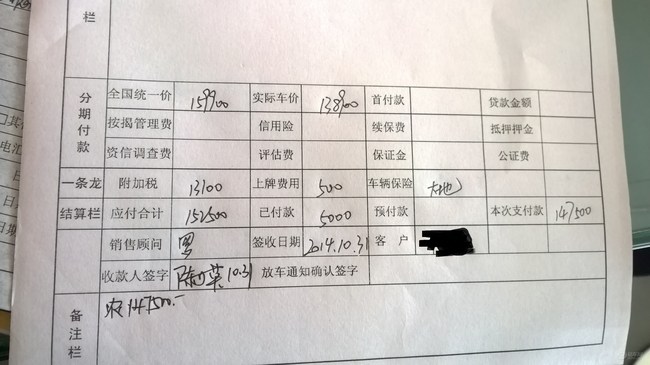 栏
分期付款
全国统一价 159900 实际车价 138900 首付款 贷款金额
按揭管理费 信用险 续保费 抵押押金
资信调查费 评估费 保证金 公证费
一条龙 附加税 13100 上牌费用 500 车辆保险 大地
结算栏 应付合计 152500 已付款 5000 预付款 本次支付款 147500
销售顾问 罗 签收日期 2014.10.31 客户
收款人签字 10.31 放车通知确认签字
备注栏
农 147500.-